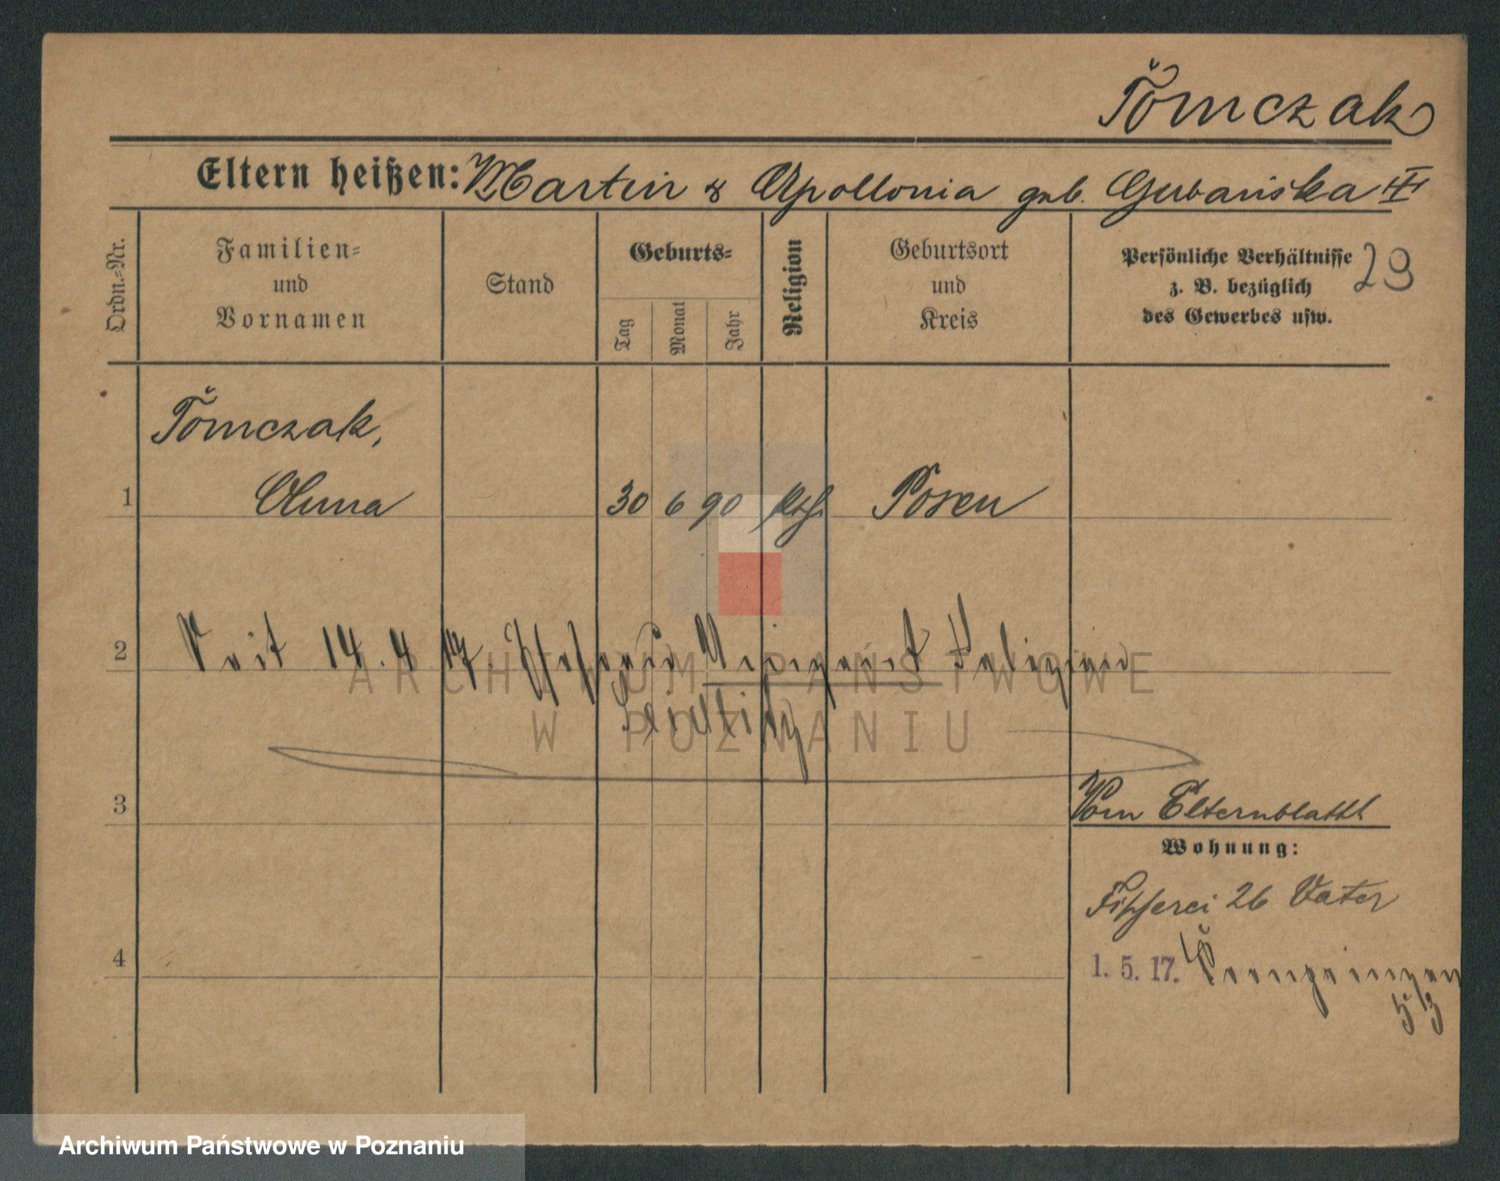 Tomczak
Eltern heißen: Martin & Apollonia geb. Gubańska III
Ordn.-Nr.
Familien- und Vornamen
Stand
Geburts-
Tag
Monat
Jahr
Religion
Geburtsort und Kreis
Persönliche Verhältnisse z. B. bezüglich des Gewerbes usw.
23
Tomczak,
1 Anna 30 6 90 kth. Posen
2 14. 4 17.
ARCHIWUM PAŃSTWOWE
W POZNANIU
3
Vom Elternblatt
Wohnung:
Fischerei 26 Vater
4
1. 5. 17.
53
Archiwum Państwowe w Poznaniu